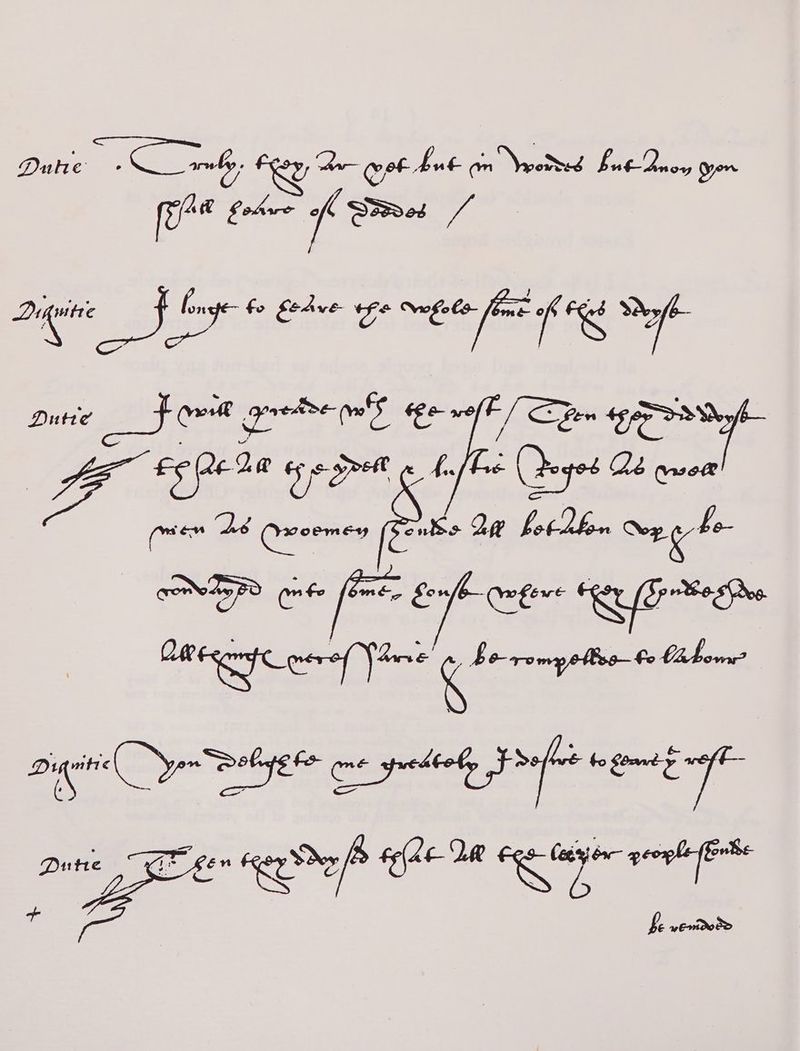 Dutie . Truly, they ar yet but in wordes but anon yon
shall heare of deedes /
Dignitie I longe to heare the whole some of this devyse
Dutie I will procede wth the rest / Then they did devyse
that all the ydell & lustie roges as well
men as woomen shoulde all be taken vp & be
convayed into some, house where they shoulde have
all thinge necessarie & be compelled to labour
Dignitie yon delyghte me greately I desire to heare ye rest
Dutie Then they devysed that all the leazer people shoulde
+ be remedied